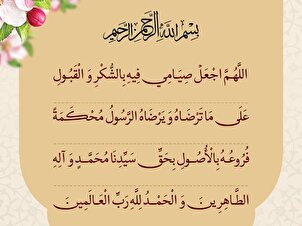 بِسْمِ اللَّهِ الرَّحْمنِ الرَّحِيمِ
اللَّهُمَّ اجْعَلْ صِيَامِي فِيهِ بِالشُّكْرِ وَ الْقَبُولِ
عَلَى مَا تَرْضَاهُ وَ يَرْضَاهُ الرَّسُولُ مُحْكَمَةً
فُرُوعُهُ بِالْأُصُولِ بِحَقِّ سَيِّدِنَا مُحَمَّدٍ وَ آلِهِ
الطَّاهِرِينَ وَ الْحَمْدُ لِلَّهِ رَبِّ الْعَالَمِينَ